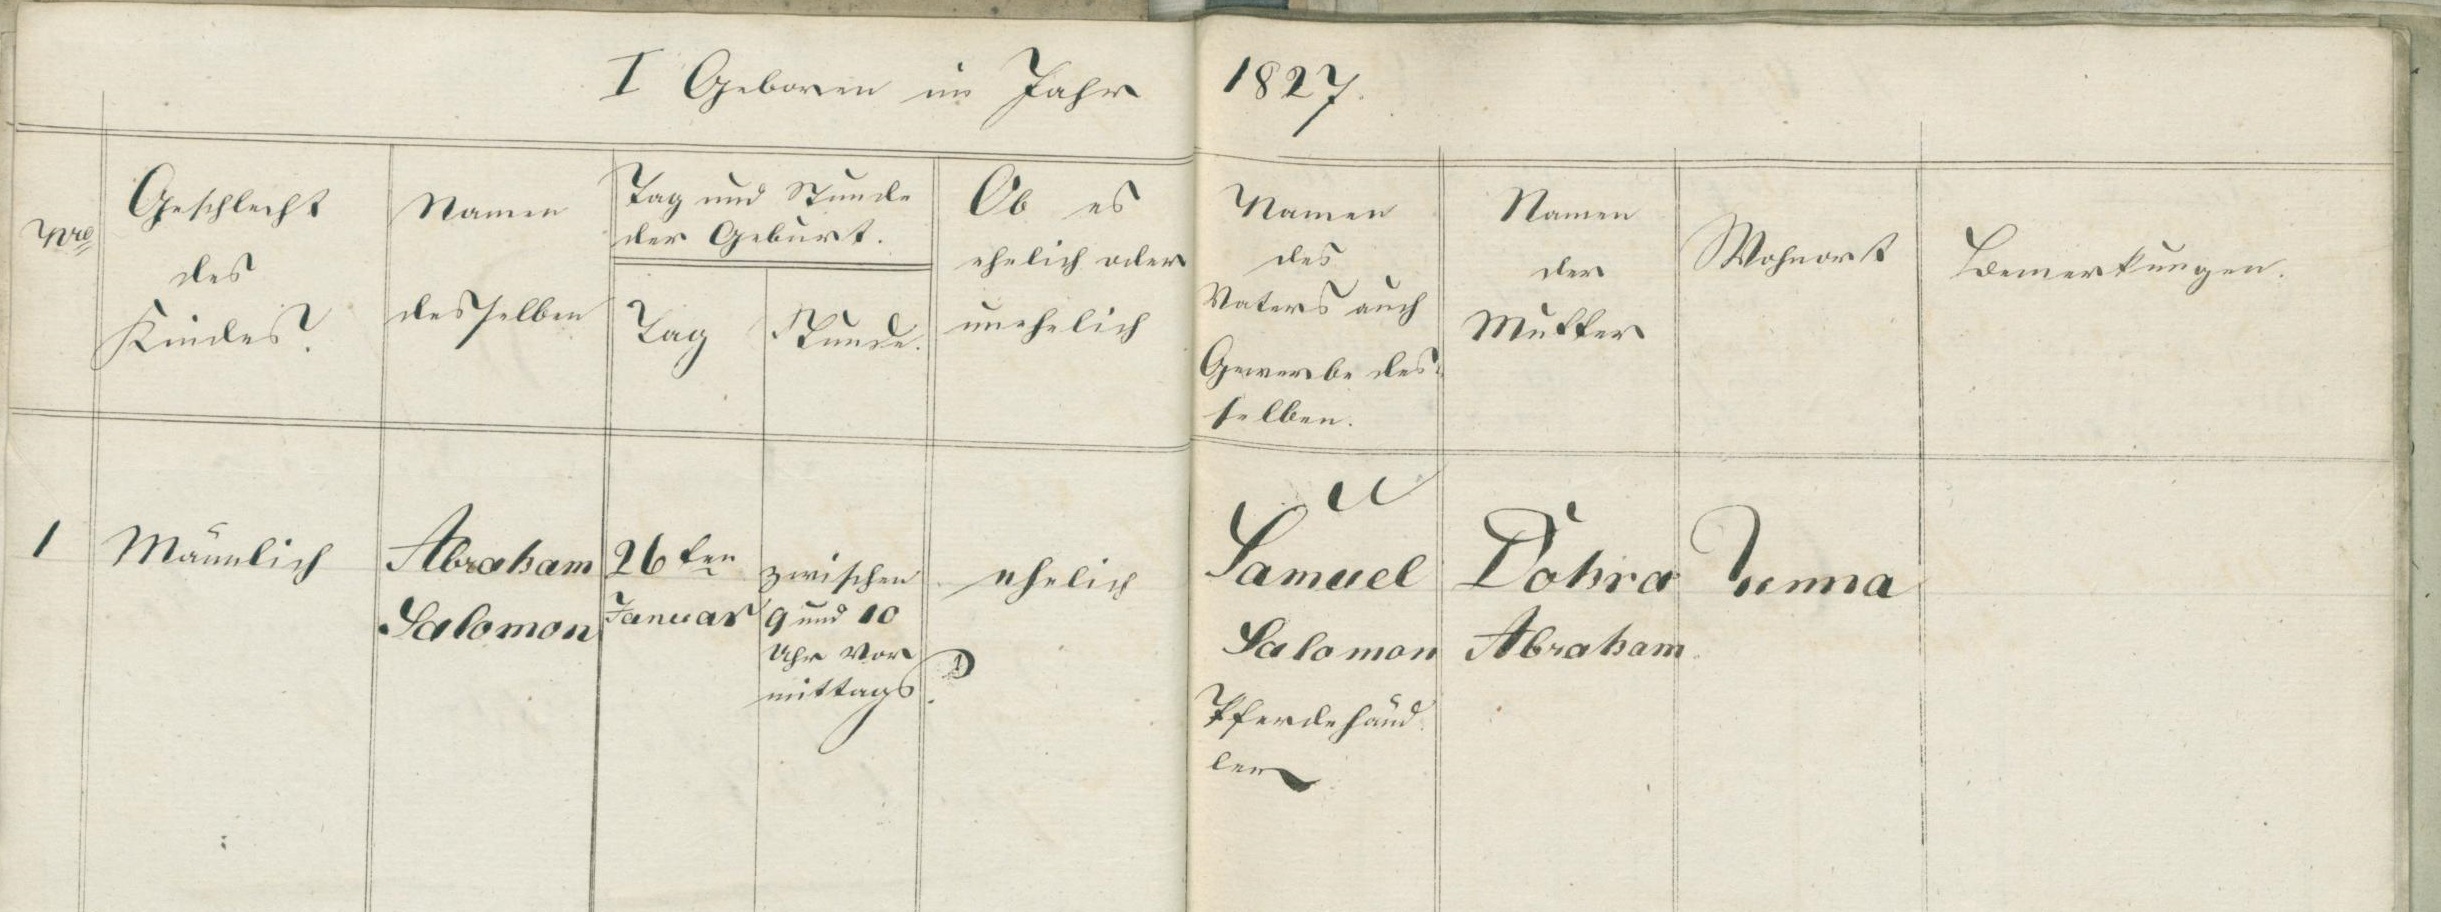 I Geboren im Jahr 1827.
Nro
Geschlecht
des
Kindes?
Namen
desselben
Tag und Stunde
der Geburt.
Tag
Stunde.
Ob es
ehelich oder
unehelich
Namen
des
Vaters auch
Gewerbe des-
selben.
Namen
der
Mutter
Wohnort
Bemerkungen.
1
Männlich
Abraham
Salomon
26ten
Januar
zwischen
9 und 10
Uhr Vor
mittags.
ehelich
Samuel
Salomon
Pferdehänd
ler
Dohra
Abraham
Unna